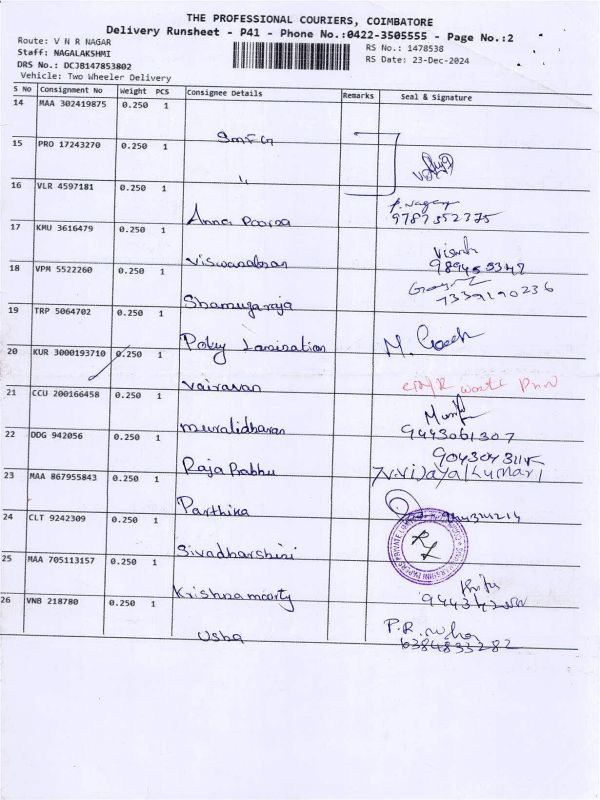 THE PROFESSIONAL COURIERS, COIMBATORE
Delivery Runsheet - P41 - Phone No.:0422-3505555 - Page No.:2
Route: V N R NAGAR
Staff: NAGALAKSHMI
DRS No.: DCJB147853802
Vehicle: Two Wheeler Delivery
RS No.: 1478538
RS Date: 23-Dec-2024
S No Consignment No Weight PCS Consignee Details Remarks Seal & Signature
14 MAA 302419875 0.250 1
SMFG
15 PRO 17243270 0.250 1
"
16 VLR 4597181 0.250 1
Annai Poorna
9787352775
17 KMU 3616479 0.250 1
Viswanathan
18 VPM 5522260 0.250 1
Shamugaraja
7339190236
19 TRP 5064702 0.250 1
Poley Lamination
20 KUR 3000193710 0.250 1
Vairavan
21 CCU 200166458 0.250 1
Muralidharan
9443061307
22 DDG 942056 0.250 1
Raja Prabhu
V.Vijayalkumari
23 MAA 867955843 0.250 1
Parthiba
24 CLT 9242309 0.250 1
Sivadharshini
25 MAA 705113157 0.250 1
Krishnamoorty
26 VNB 218780 0.250 1
Usha
P.R.
6384833282